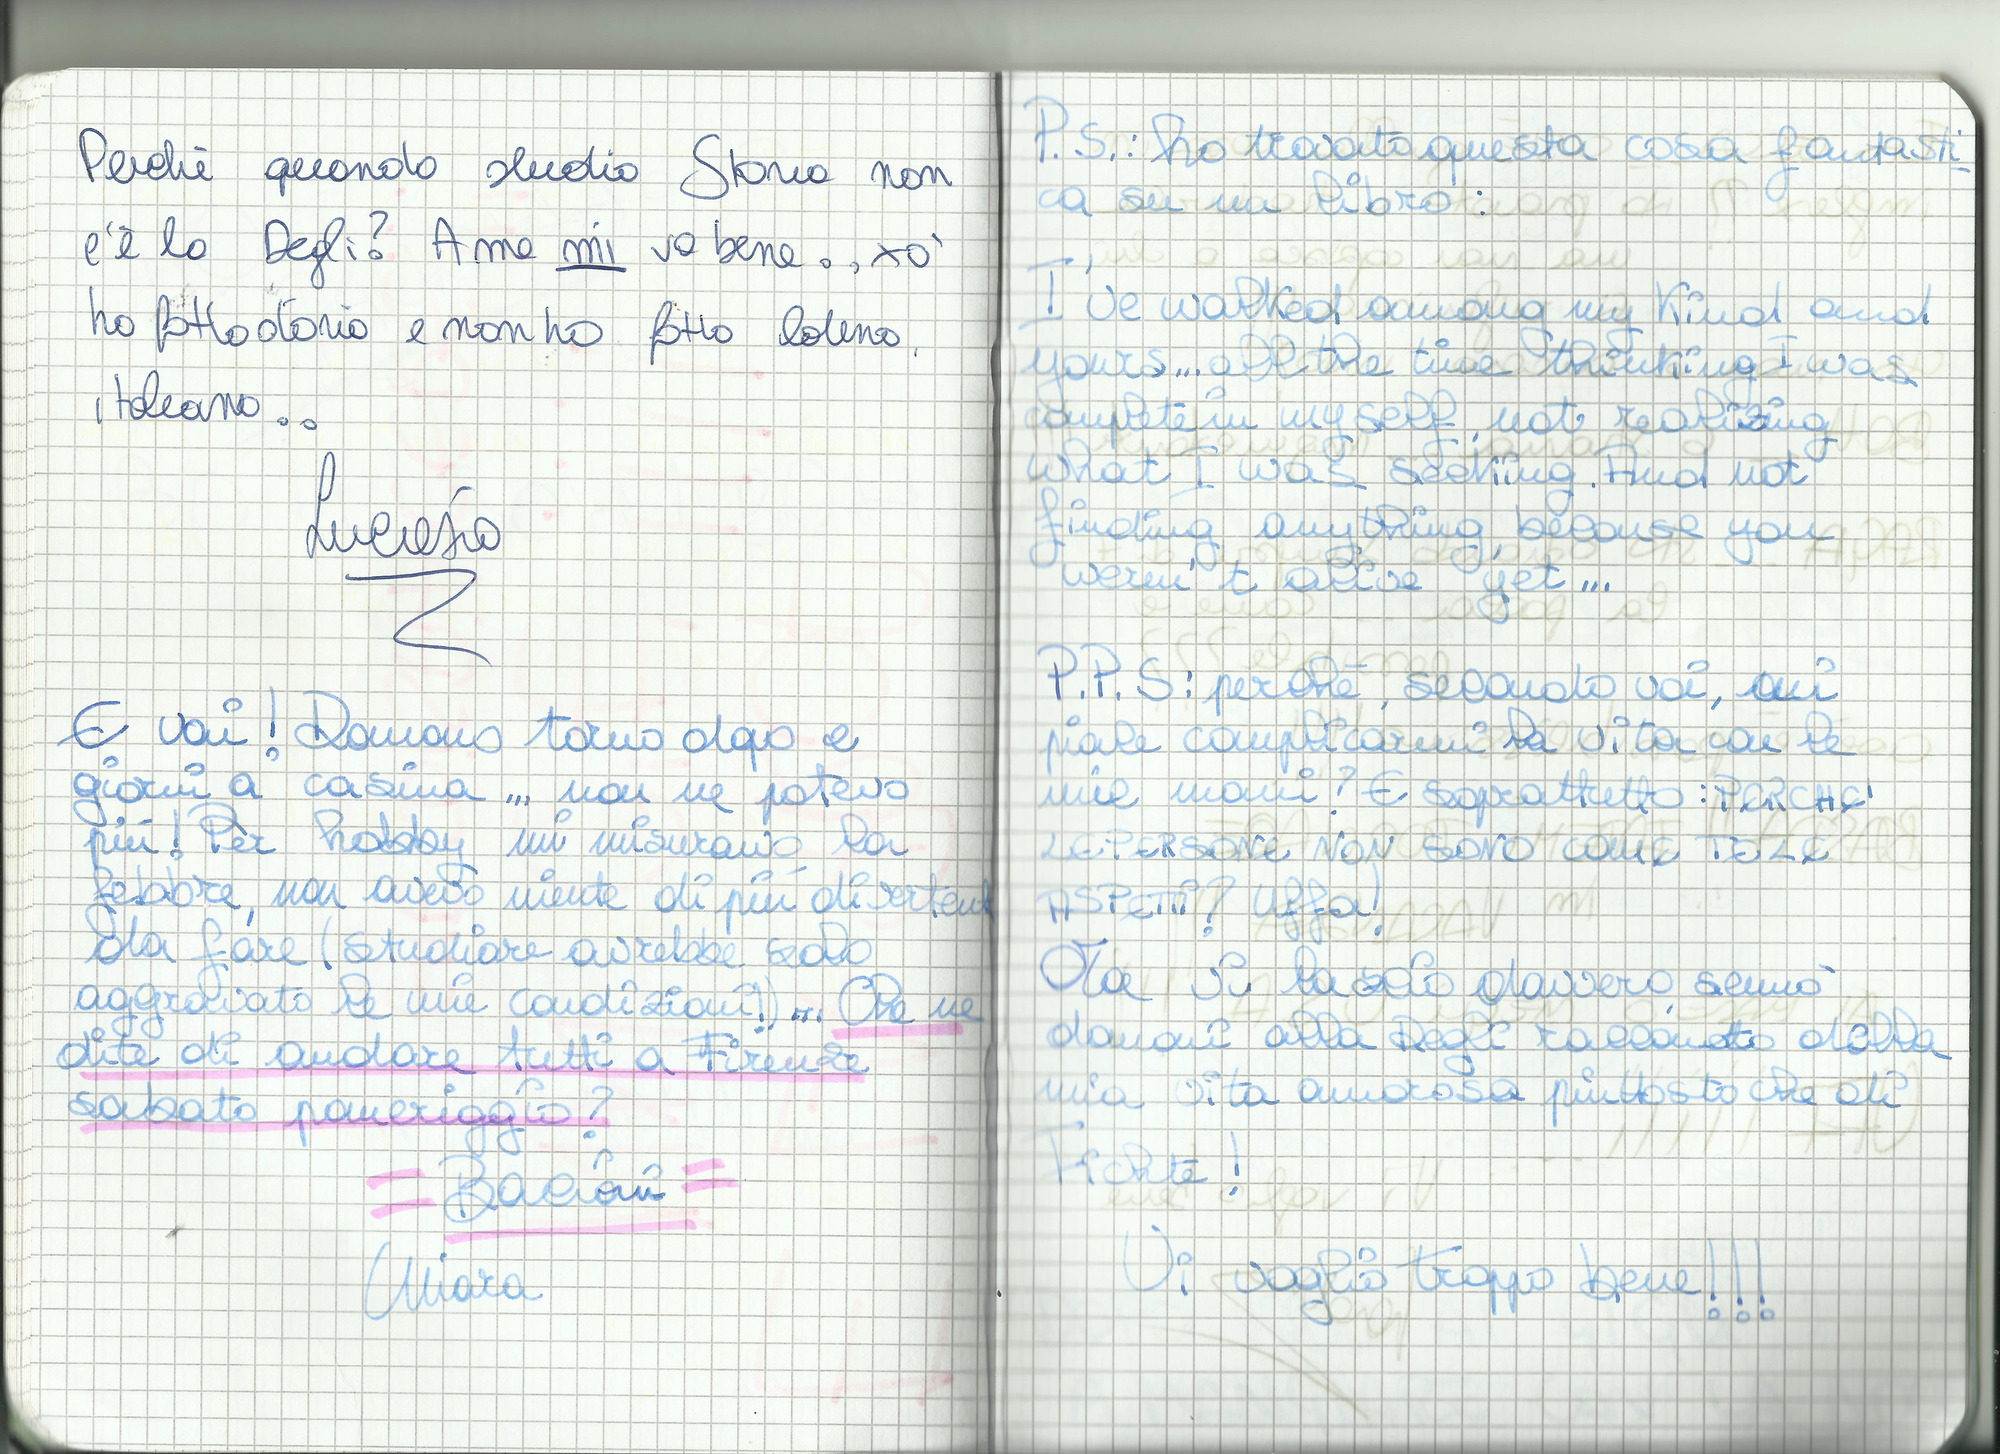 Perchè quando studio Storia non
c'è la Degli? A me mi va bene.., xò
ho fatto storia e non ho fatto latino.
italiano..
Lucrezia
E vai! Domani torno dopo e
giorni a casina... non ne potevo
più! Per hobby mi misuravo la
febbre, non avevo niente di più divertent
da fare (studiare avrebbe solo
aggravato le mie condizioni!)... Che ne
dite di andare tutti a Firenze
sabato pomeriggio?
= Bacioni =
Chiara
P.S.: ho trovato questa cosa fantasti-
ca su un libro:
I've walked among my kind and
yours... all the time thinking I was
complete in myself, not realizing
what I was seeking. And not
finding anything, because you
weren't alive yet...
P.P.S: perché, secondo voi, mi
piace complicarmi la vita con le
mie mani? E soprattutto: PERCHE'
LE PERSONE NON SONO COME TE LE
ASPETTI? Uffa!
Ora vi lascio davvero, sennò
domani alla Degli racconto della
mia vita amorosa piuttosto che di
Fichte!
Vi voglio troppo bene!!!